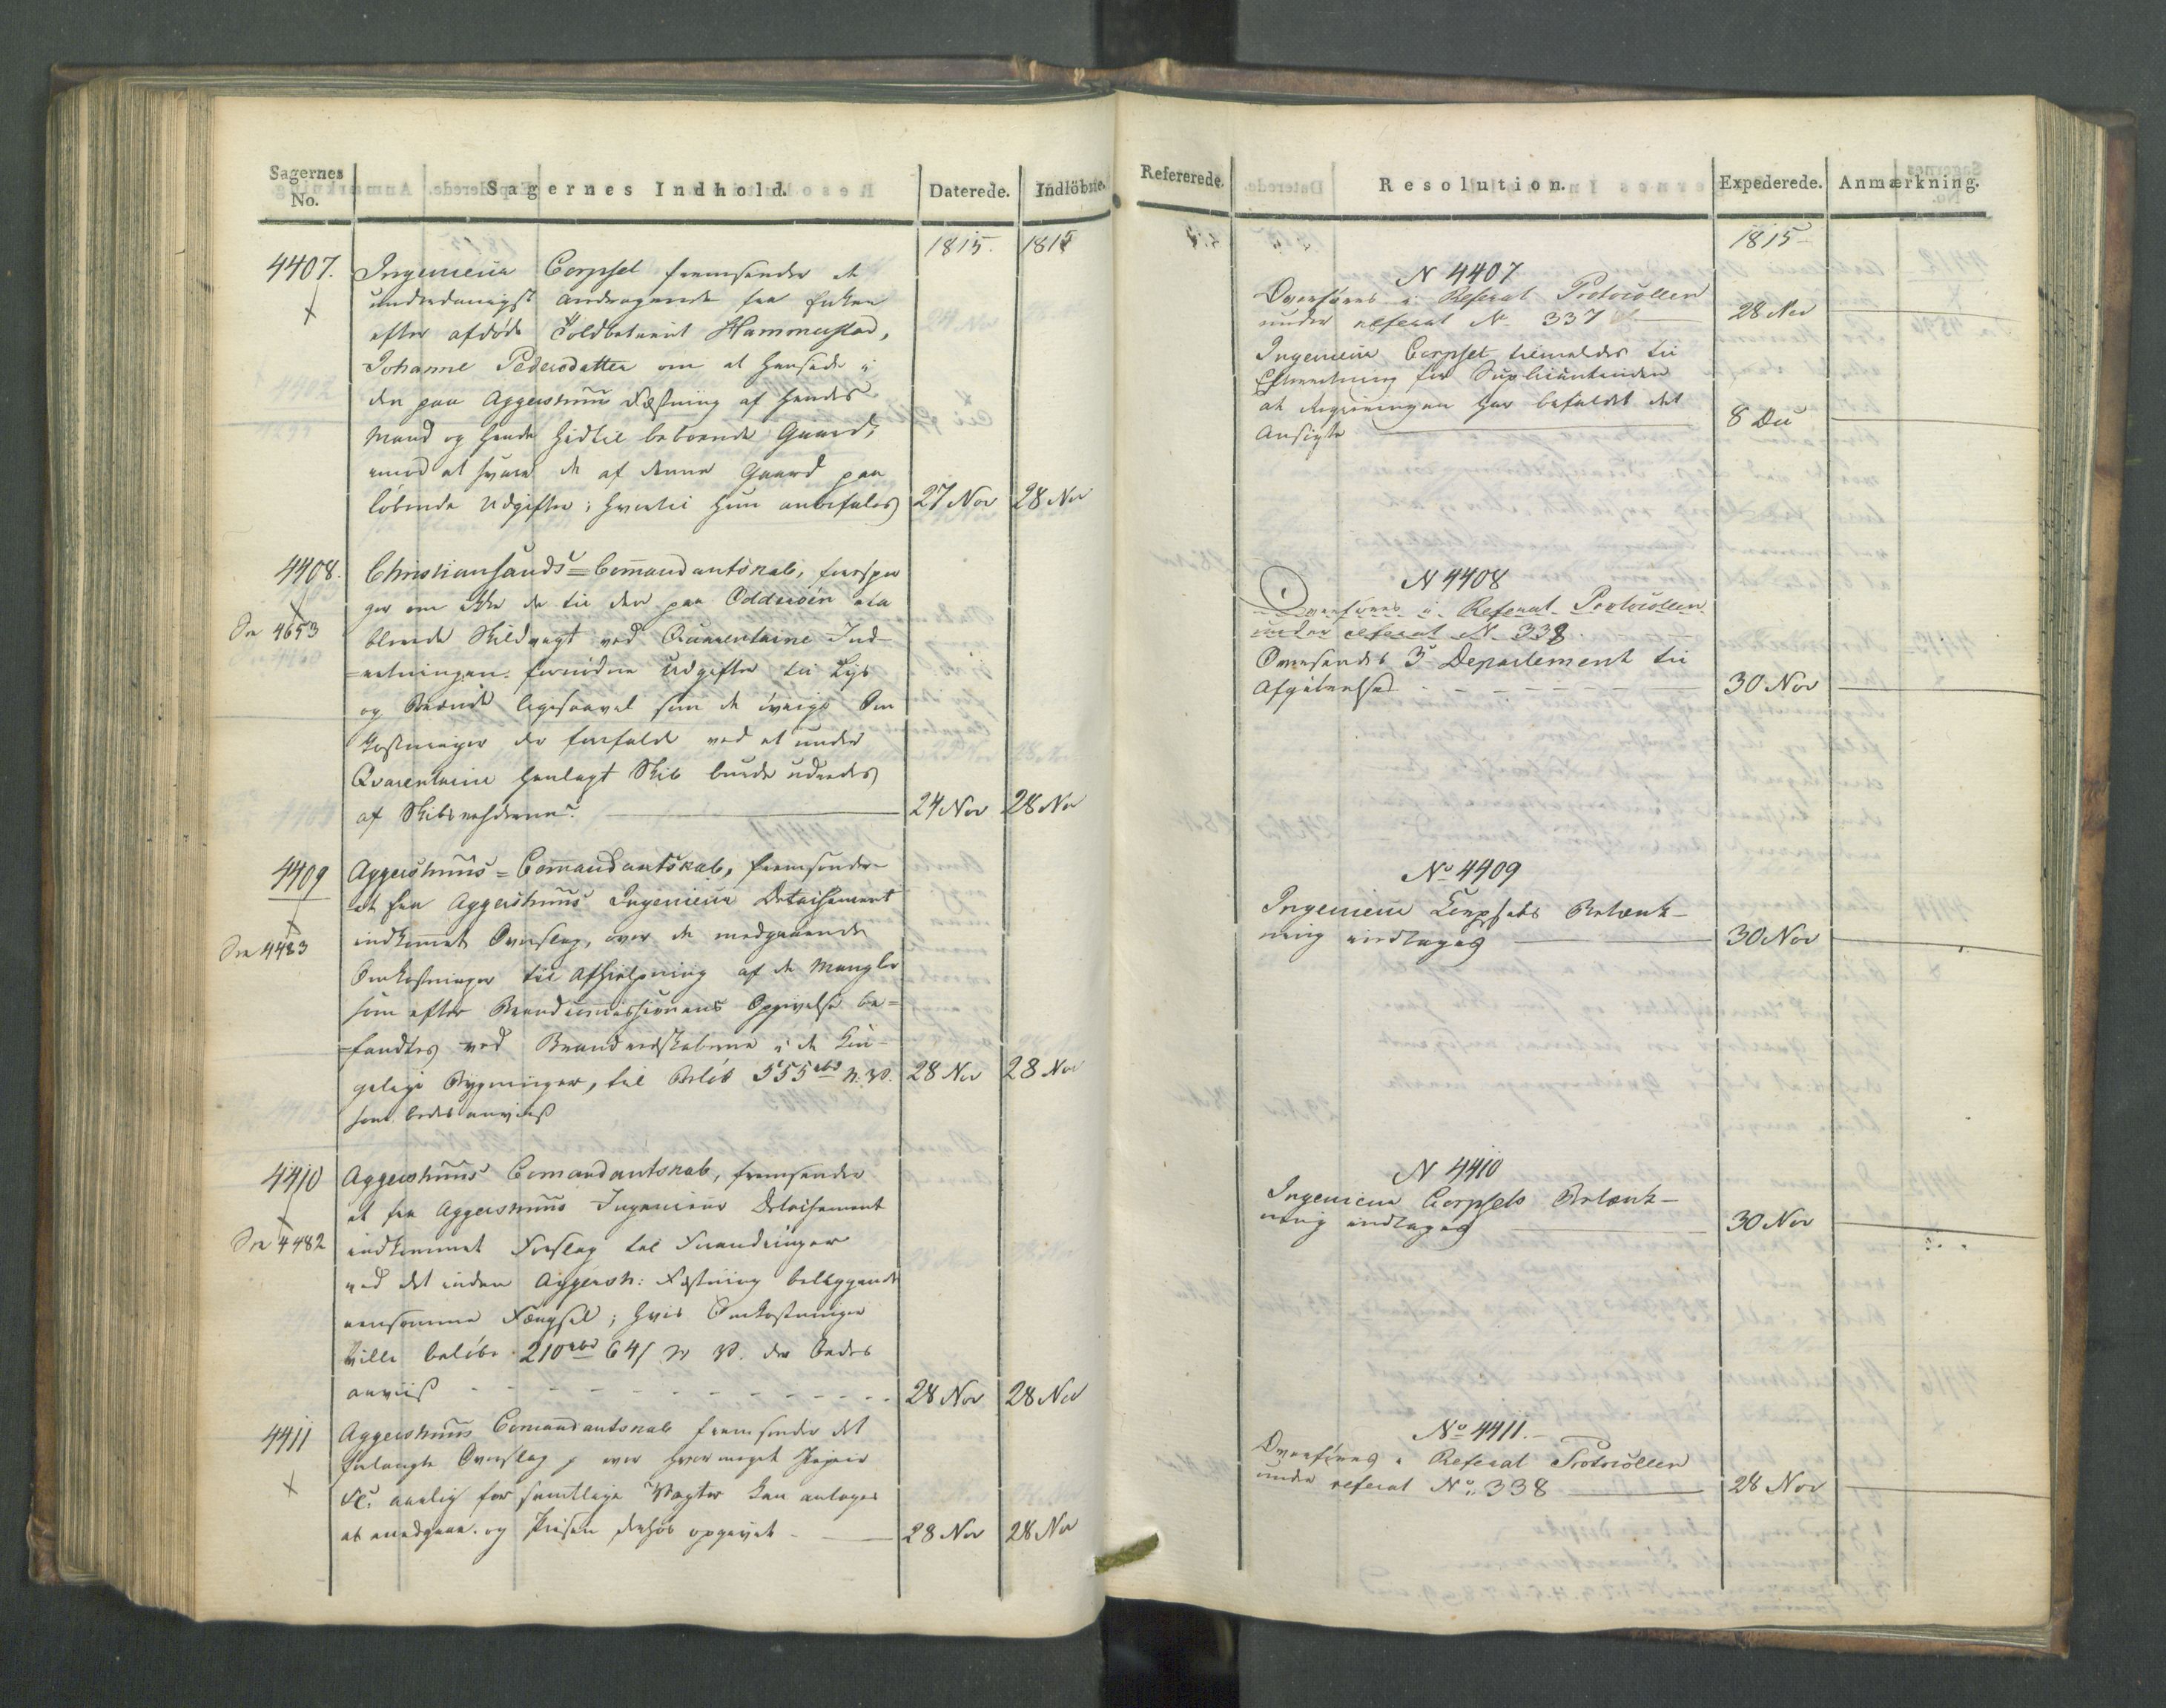 Sagernes No.
Sagernes Indhold.
Daterede.
Indlöbne.
1815.
1815
4407.
Ingenieur Corpset fremsender et
underdanigst andragende fra Enken
efter afdøde Toldbetient Hammerstad,
Johanne Pedersdatter om at henside i
den paa Aggershuus Fæstning af hendes
Mand og hende hidtil beboende Gaard,
imod at svare de af denne Gaard paa
løbende Udgifter; hvortil hun anbefales
27 Nov
28 Nov
4408.
Christiansands=Commandantskab, forespør
ger om ikke de til den paa Odderöen eta
blerede Skildvagt ved Quarentaine Ind-
=retningen fornødne Udgifter til Lys
og Brænde ligesaavel som de øvrige Om
kostninger der forfalde ved et under
Qvarentaine henlagt Skib burde udredes
af Skibsrehderne?
24 Nov
28 Nov
Dn 4653
4409
Aggershuus=Commandantskab, fremsender
et fra Aggershuus Ingenieur Detachement
indkommet Overslag, over de medgaaende
Omkostninger til Afhielpning af de Mangler
som efter Brandcommissionens Opgivelse be=
=fandtes ved Brandredskaberne i de Kon-
gelige Bygninger, til Beløb 555 rbd N. V.
som bedes anviist
28 Nov
28 Nov
Dn 4483
4410
Aggershuus Commandantskab, fremsender
et fra Aggershuus Ingenieur Detachement
indkommet Forslag til Forandringer
ved det inden Aggersh: Fæstning beliggende
eensomme Fængsel; hvis Omkostninger
ville beløbe 210 rbd 64 s N V. der bedes
anviist
28 Nov
28 Nov
Dn 4482
4411
Aggershuus Commandantskab fremsender det
forlangte Overslag, over hvor meget Papir
&c. aarlig for samtlige Vagter kan antages
at medgaae. og Prisen derhos opgivet
28 Nov
28 Nov
Refererede.
Resolution.
Expederede.
Anmærkning.
1815
N 4407
Overføres i Referat Protocollen
under referat N 337
28 Nov
Ingenieur Corpset tilmeldes til
Efterretning for Suplicantinden
at Regieringen har befalet det
Ansøgte
8 De
N 4408
Overføres i Referat Protocollen
under referat N 338.
Oversendes 3 Departement til
Afgiørelse
30 Nov
No 4409
Ingenieur Corpsets Betænk-
ning indtages
30 Nov
N 4410
Ingenieur Corpsets Betænk-
ning indtages
30 Nov
No 4411.
Overføres i Referat Protocollen
under referat No. 338
28 Nov